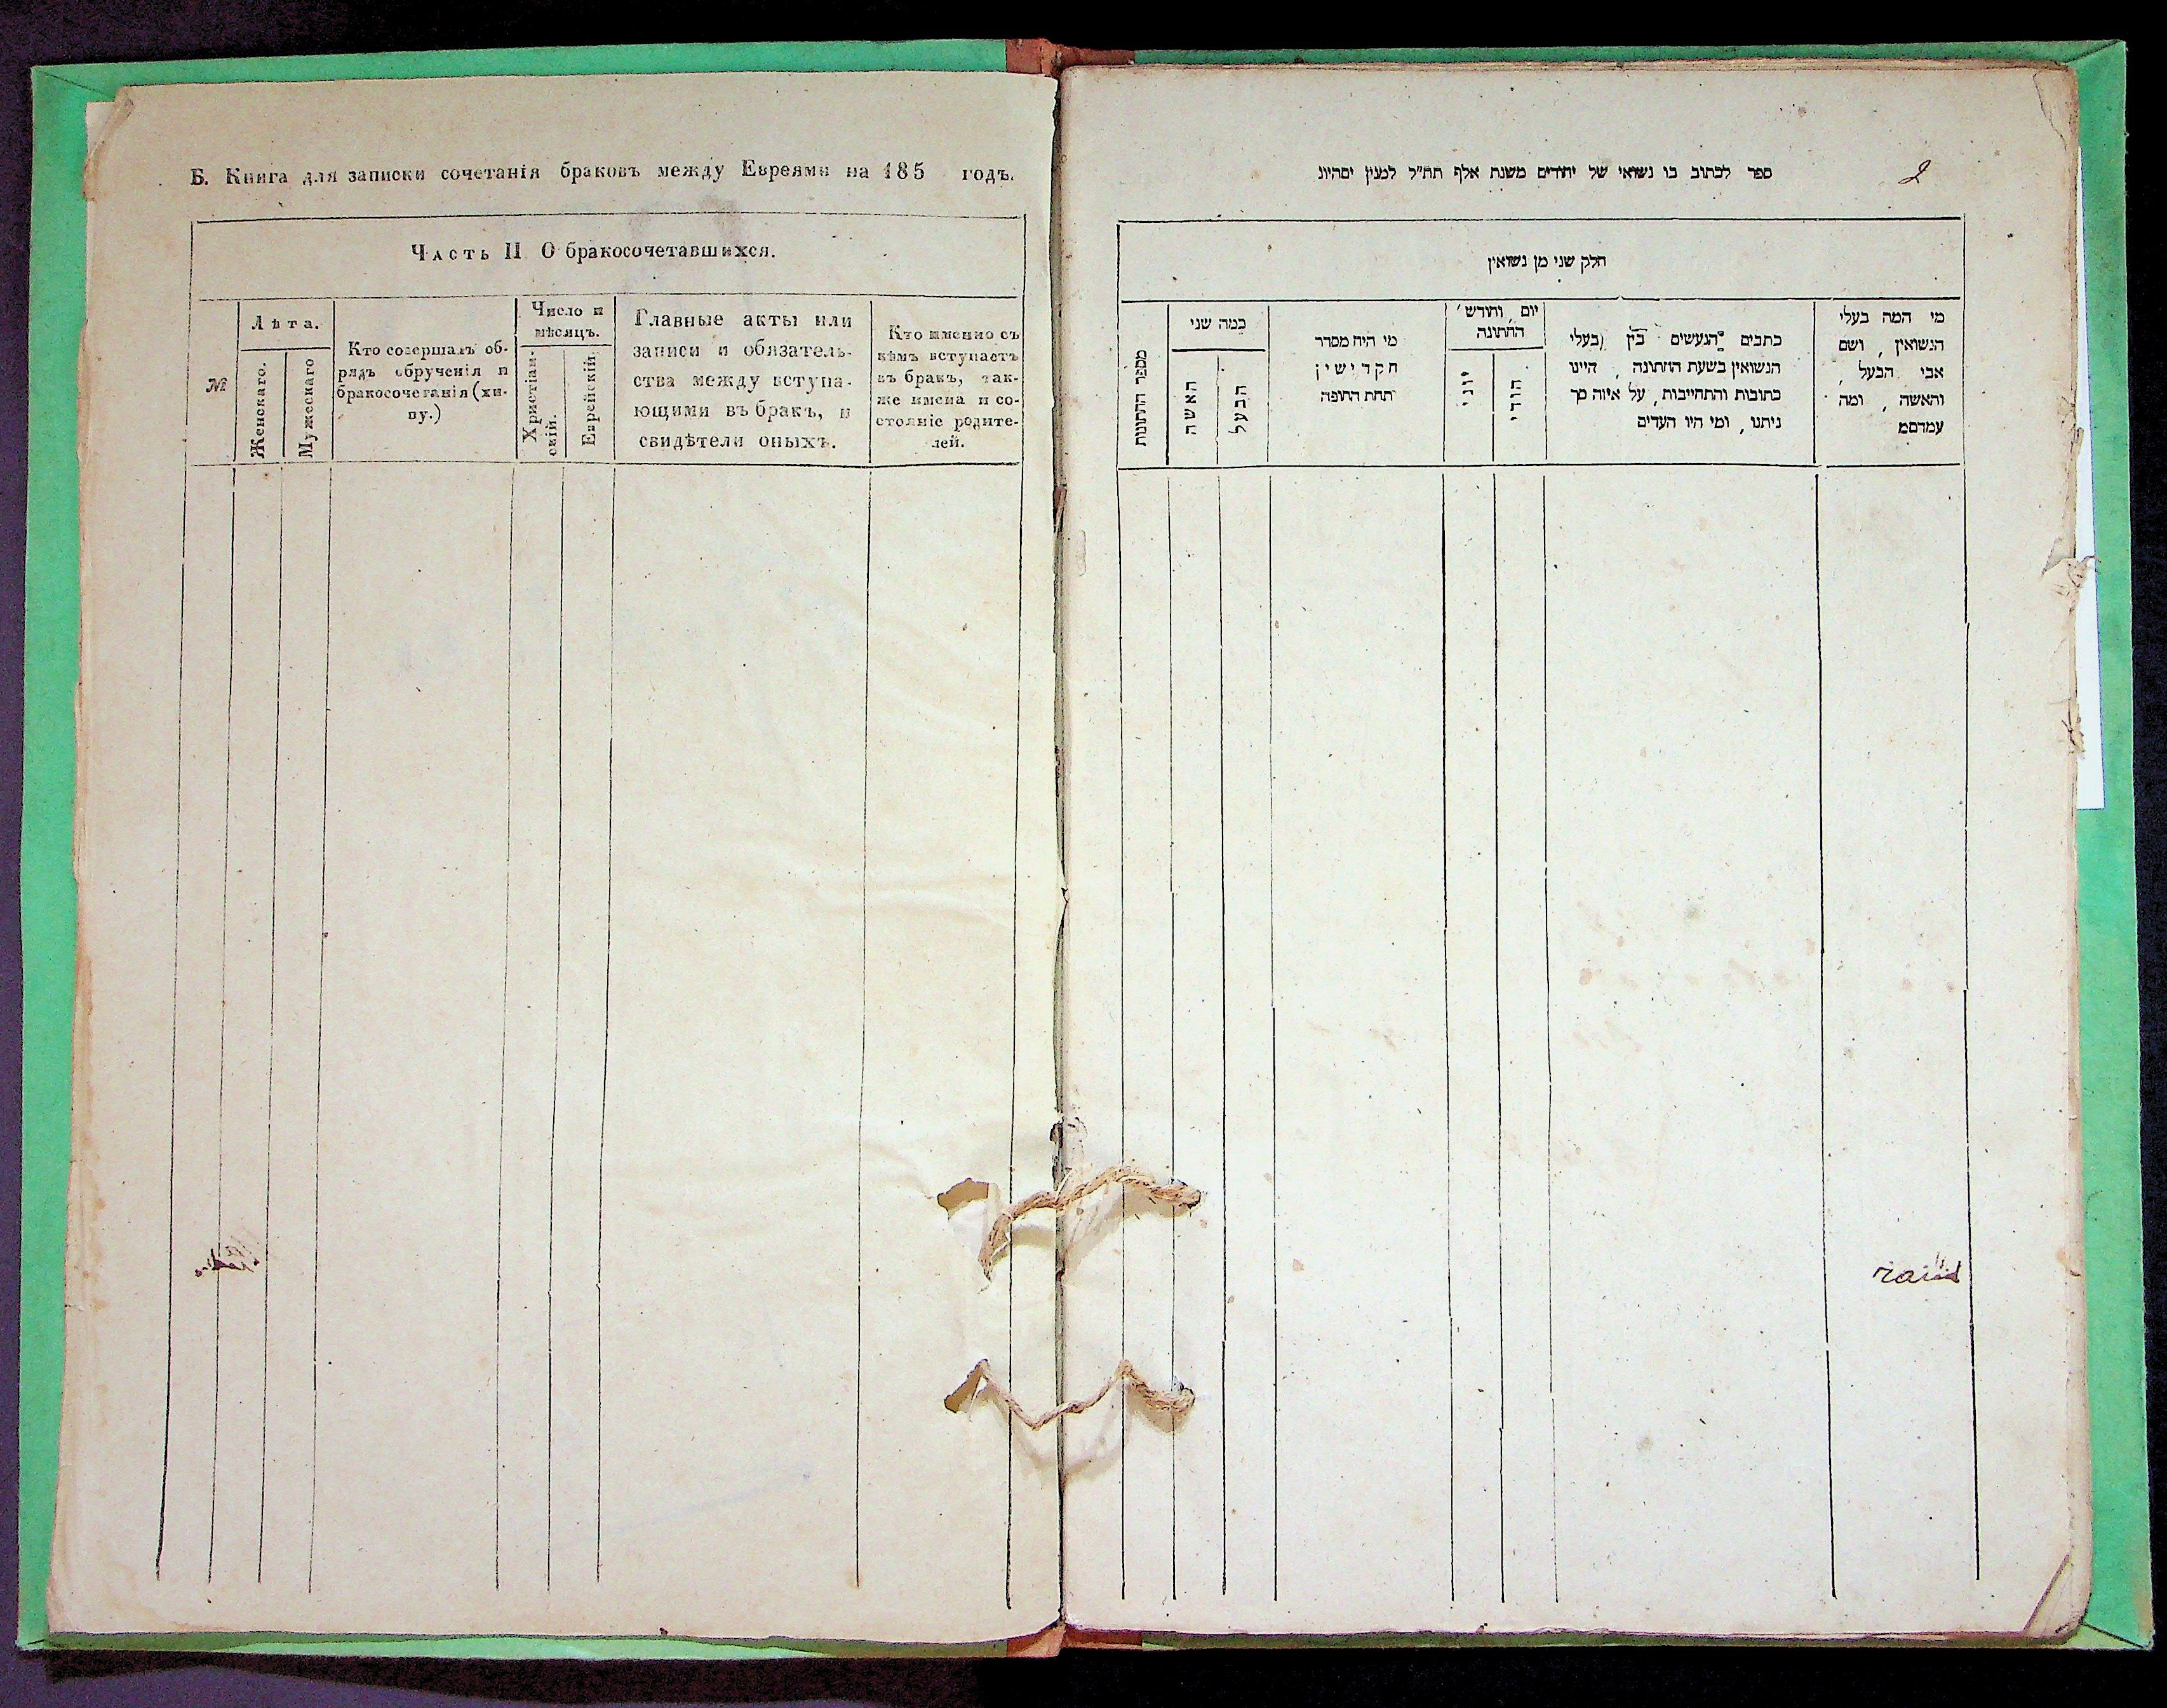 Б. Книга для записки сочетанія браковъ между Евреями на 185 годъ.
Часть II О бракосочетавшихся.
№
Лѣта.
Женскаго.
Мужескаго
Кто совершалъ об-
рядъ обрученія и
бракосочетанія (хи-
пу.)
Число и
мѣсяцъ.
Христіан-
скій.
Еврейскій.
Главные акты или
записи и обязатель-
ства между вступа-
ющими въ бракъ, и
свидѣтели оныхъ.
Кто именно съ
кѣмъ вступаетъ
въ бракъ, так-
же имена и со-
стояніе родите-
лей.
ספר לכתוב בו נשואי של יהודים משנת אלף תח״ל למנין
2
חלק שני מן נשואין
מי המה בעלי
הנשואין, ושם
אבי הבעל,
והאשה, ומה
עמדם
כתבים הנעשים בין בעלי
הנשואין בשעת החתונה, היינו
כתובות והתחייבות, על איזה סך
ניתנו, ומי היו העדים
יום, וחודש
החתונה
הודי
יוני
מי היה מסדר
הקדישין
תחת החופה
כמה שני
הבעל
האשה
מספר החתונות